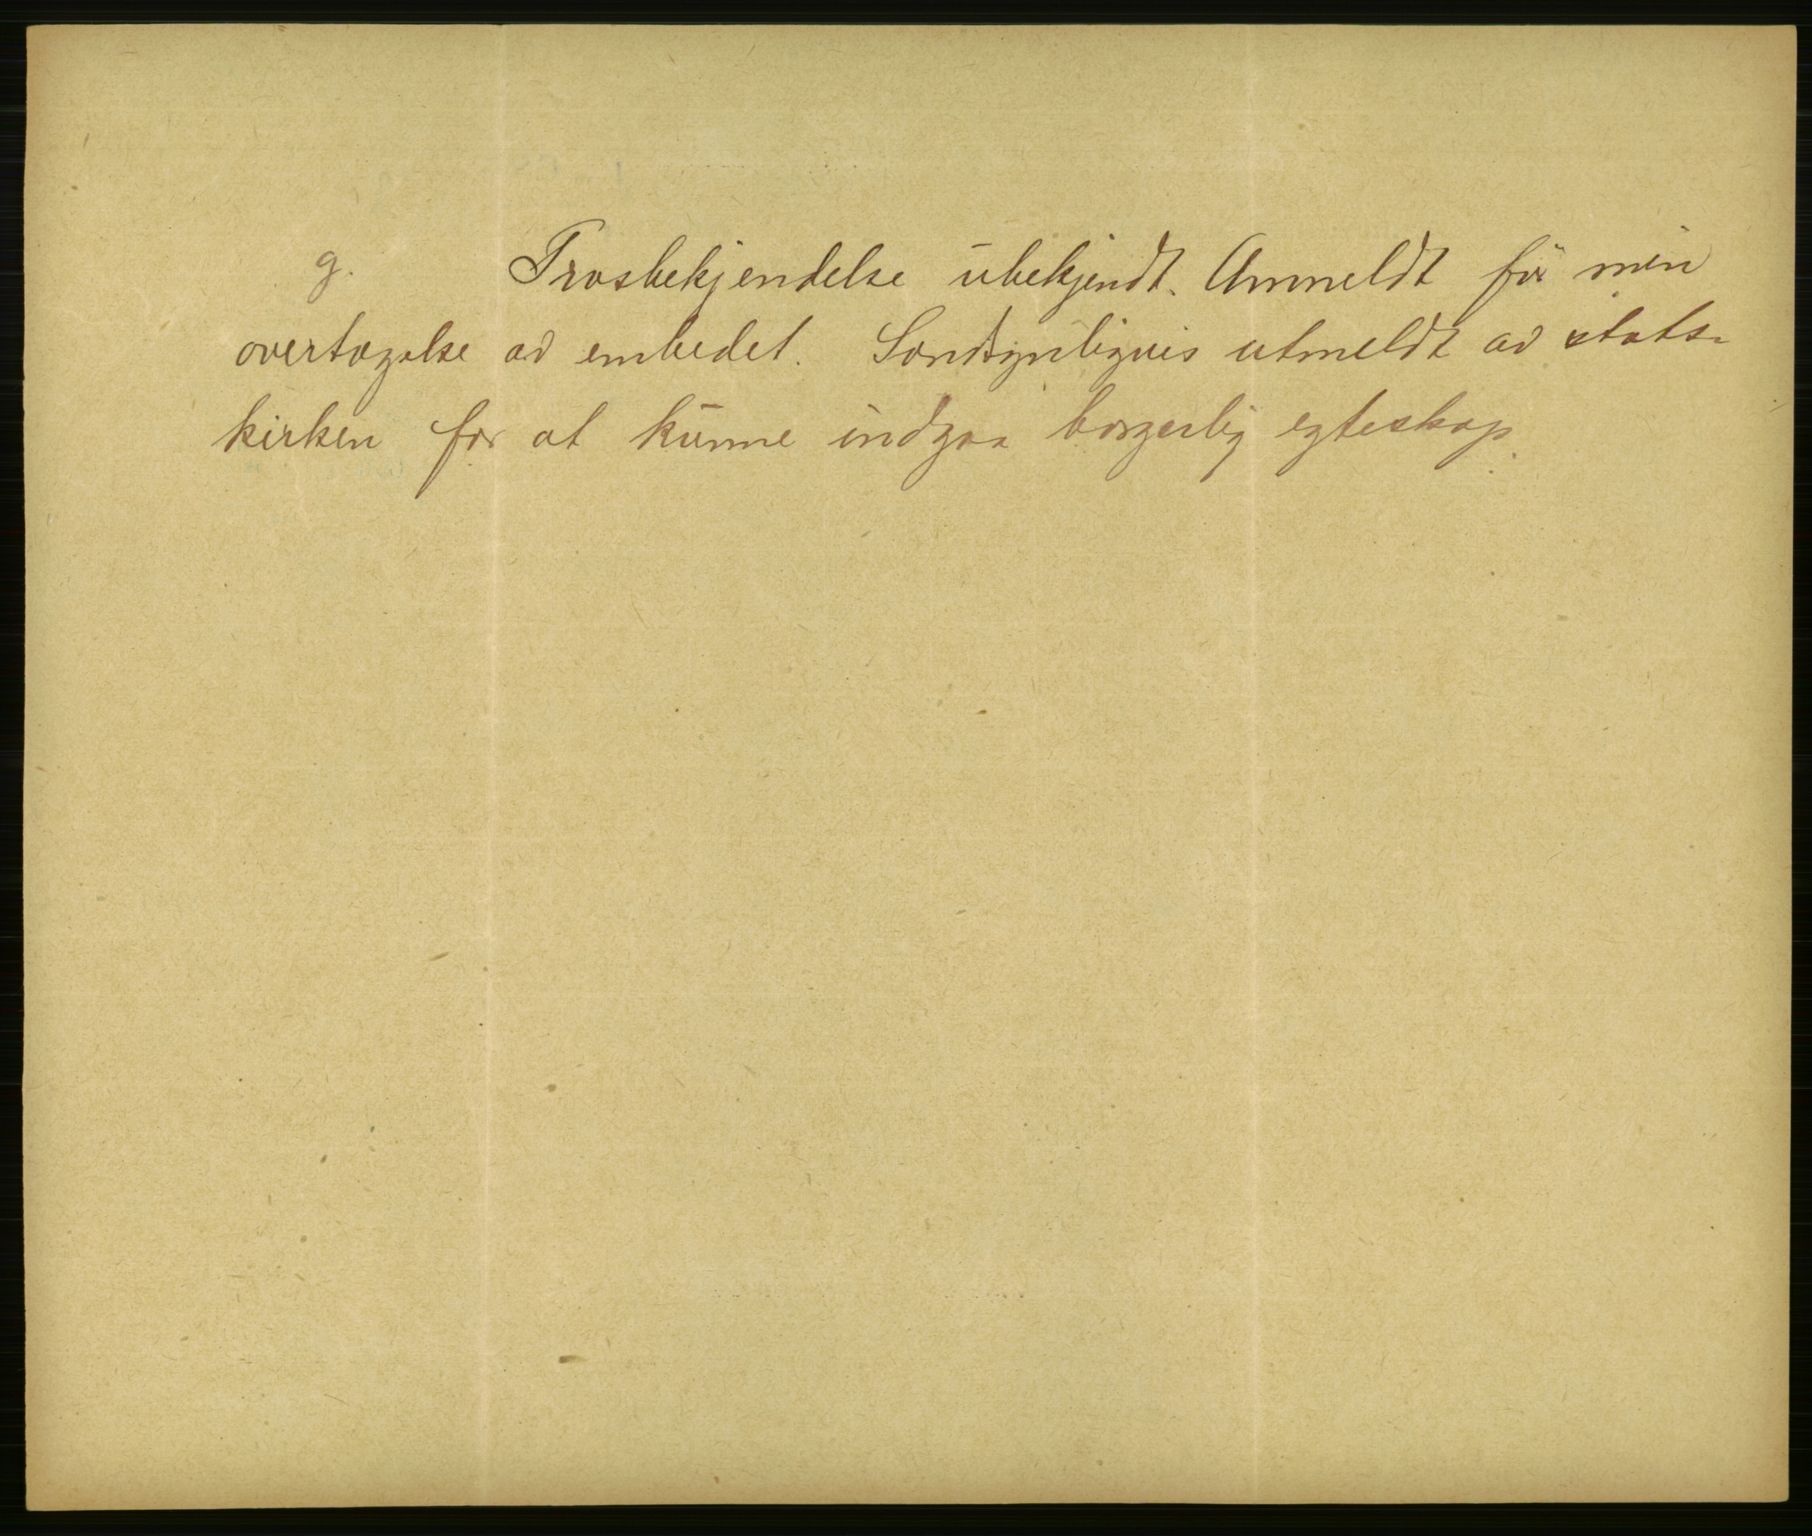 g. Trosbekjendelse ubekjendt. Anmeldt før min
overtagelse av embedet. Sandsynligvis utmeldt av stats-
kirken for at kunne indgaa borgerlig egteskap.